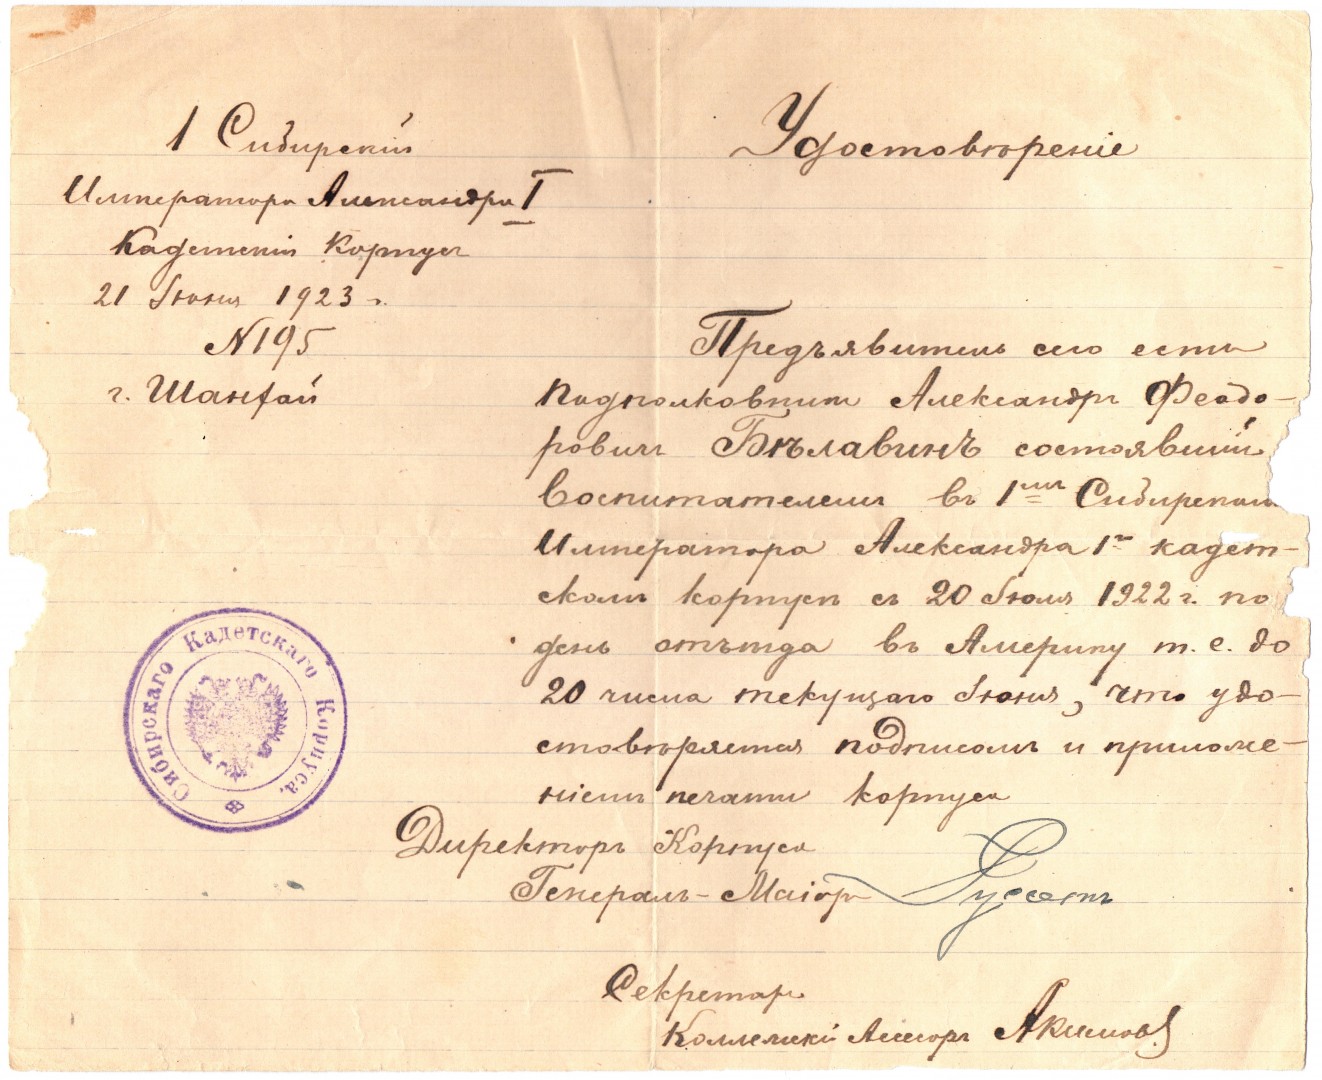 1 Сибирскій
Императора Александра I
Кадетскій Корпусъ
21 Іюня 1923 г.
N 195
г. Шанхай
Удостовѣреніе
Предъявитель сего есть
подполковникъ Александръ Феодо-
ровичъ Бѣлавинъ состоявшій
воспитателемъ въ 1мъ Сибирскомъ
Императора Александра 1го кадет-
скомъ корпусѣ съ 20 Іюля 1922 г. по
день отъѣзда въ Америку т. е. до
20 числа текущаго Іюня, что удо-
стовѣряется подписомъ и приложе-
ніемъ печати корпуса
Директоръ Корпуса
Генералъ-Маіоръ Руссетъ
Секретарь
Коллежскій Асесоръ Акимовъ
Сибирскаго Кадетскаго Корпуса.